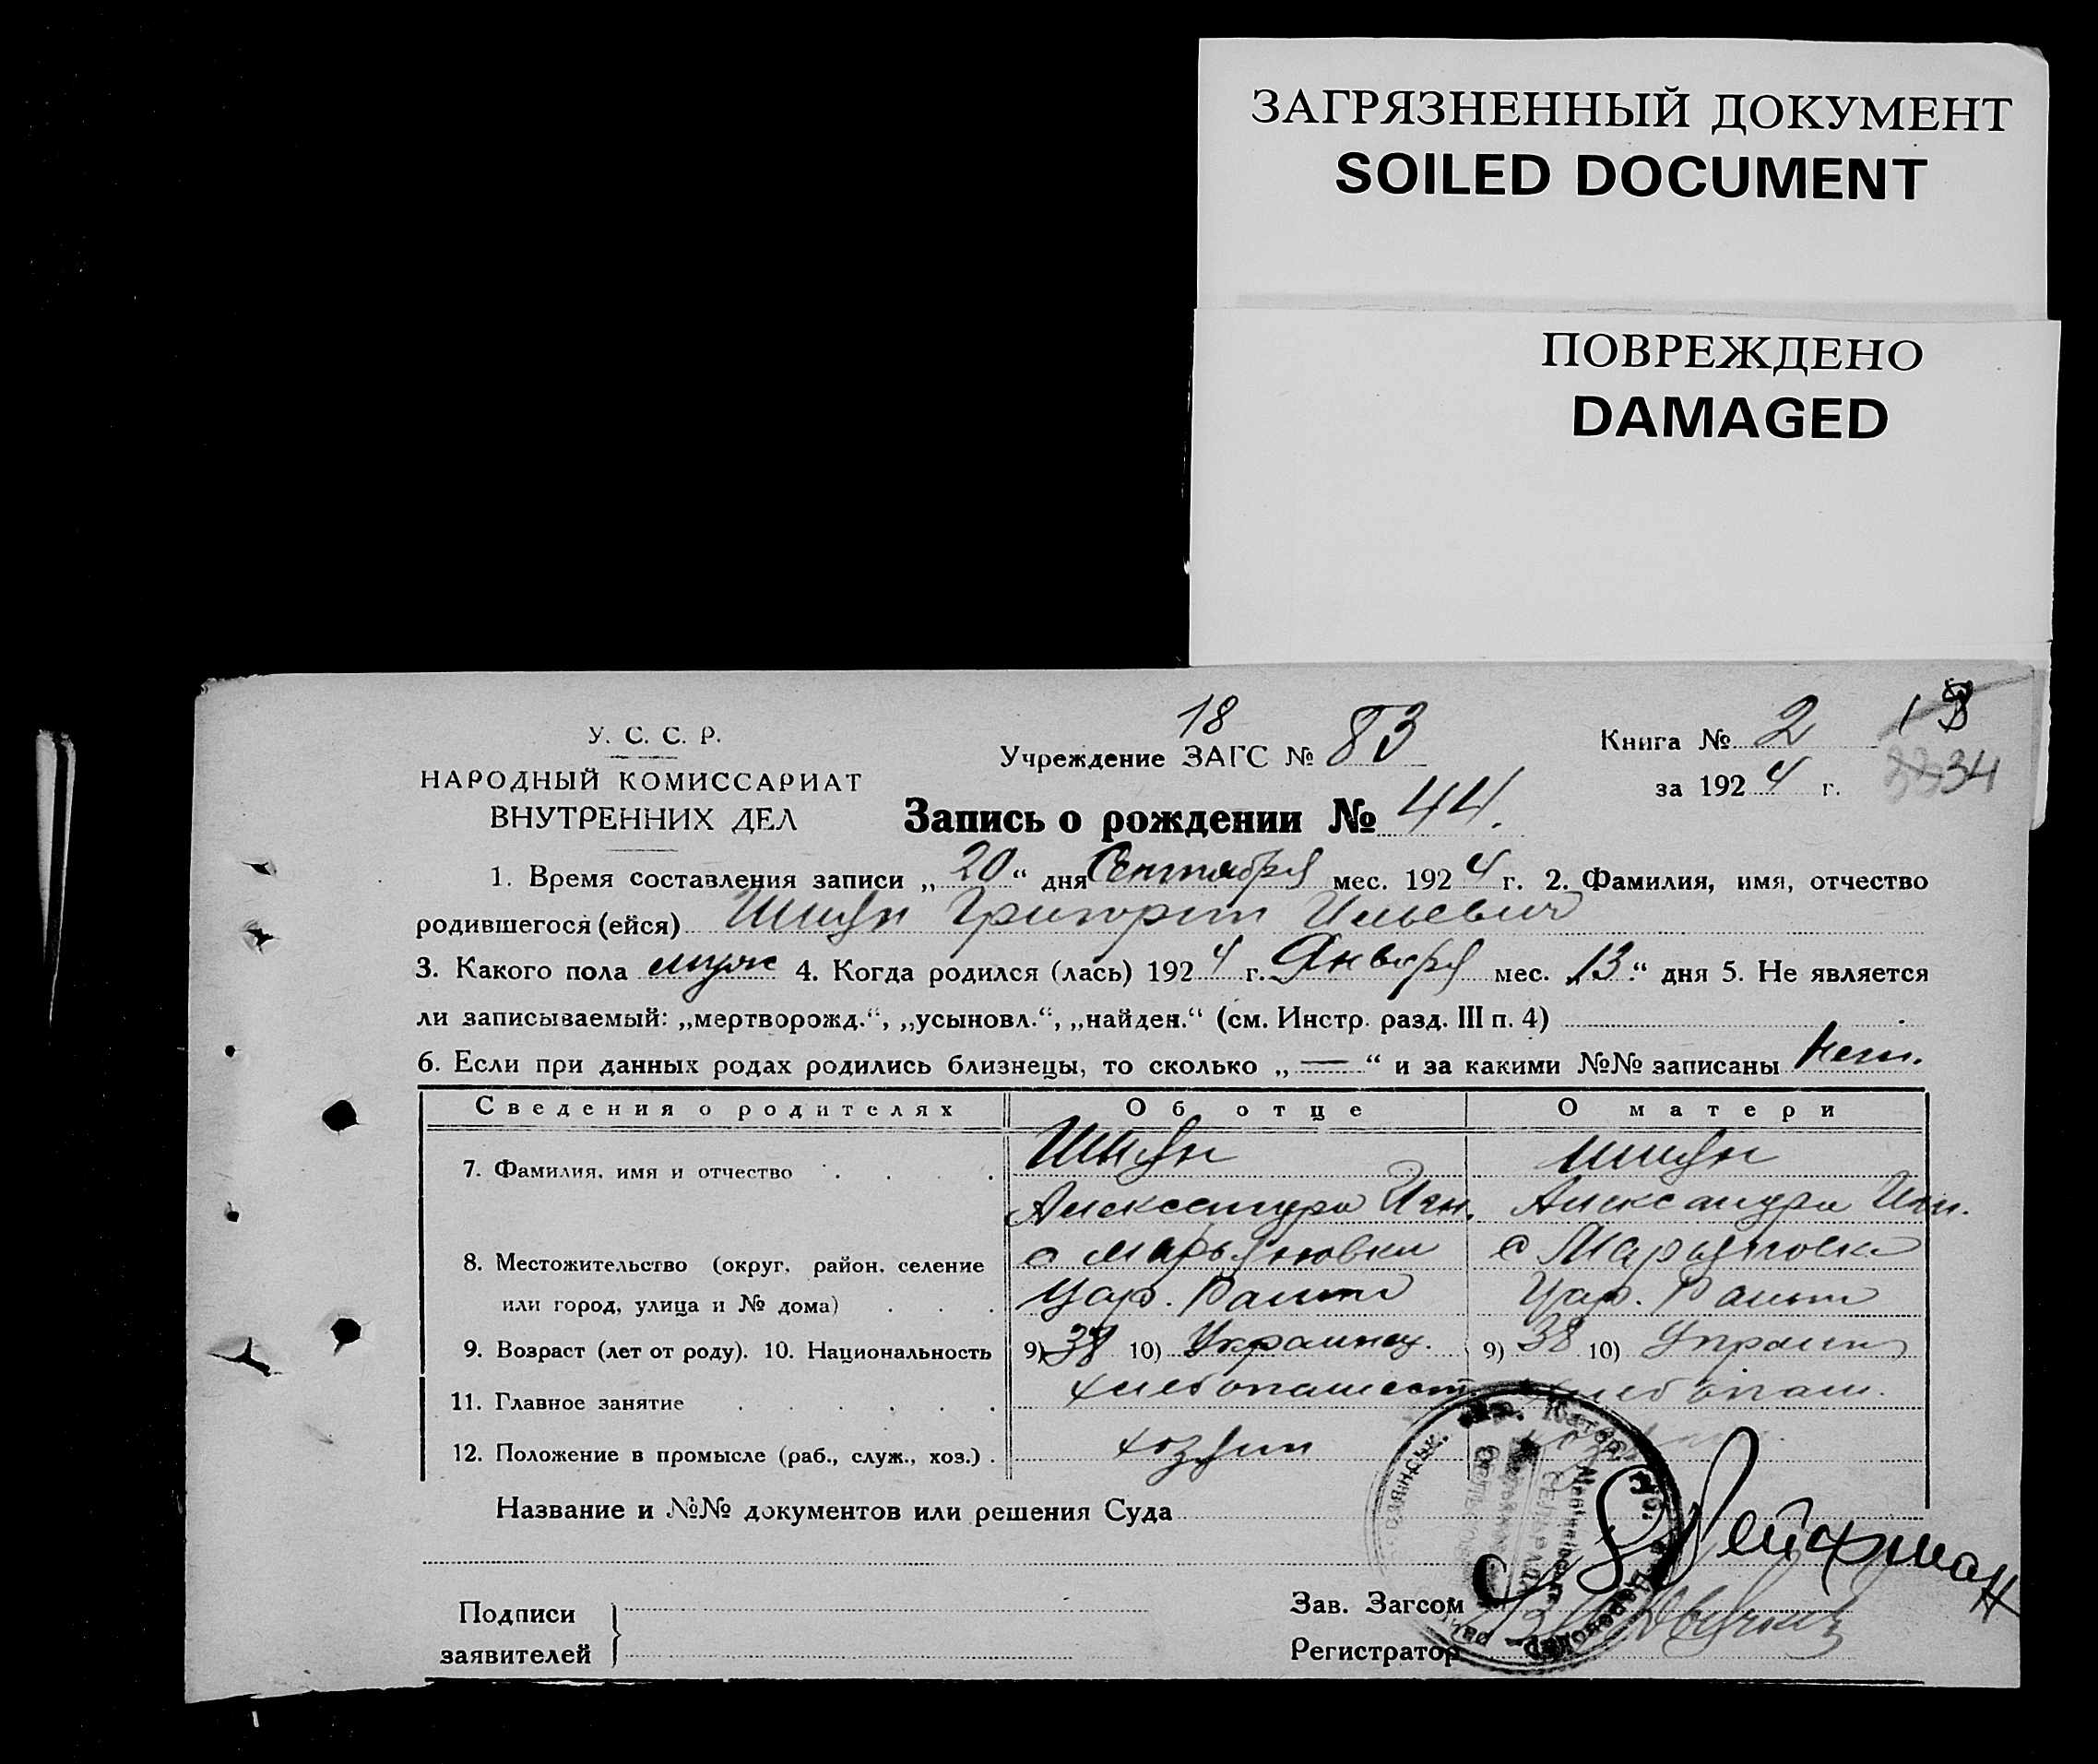 ЗАГРЯЗНЕННЫЙ ДОКУМЕНТ
SOILED DOCUMENT
ПОВРЕЖДЕНО
DAMAGED
У. С. С. Р.
НАРОДНЫЙ КОМИССАРИАТ
ВНУТРЕННИХ ДЕЛ
18
Учреждение ЗАГС № 83
Книга № 2
за 1924 г.
34
Запись о рождении № 44.
1. Время составления записи „20“ дня Сентября мес. 1924 г. 2. Фамилия, имя, отчество
родившегося (ейся) Григорий Ильевич
3. Какого пола муж 4. Когда родился (лась) 1924 г. Января мес. „13“ дня 5. Не является
ли записываемый: „мертворожд.“, „усыновл.“, „найден.“ (см. Инстр. разд. III п. 4)
6. Если при данных родах родились близнецы, то сколько „—“ и за какими №№ записаны нет.
Сведения о родителях Об отце О матери
7. Фамилия, имя и отчество
Александра Игн. Александра Игн.
8. Местожительство (округ, район, селение с Марьяновки с Марьяновка
или город, улица и № дома) Цар. Район Цар. Район
9. Возраст (лет от роду). 10. Национальность 9) 38 10) Украинец. 9) 38 10) Украин
11. Главное занятие хлебопашест. хлебопаш.
12. Положение в промысле (раб., служ., хоз.) хозяин
Название и №№ документов или решения Суда
Подписи
заявителей
Зав. Загсом
Регистратор